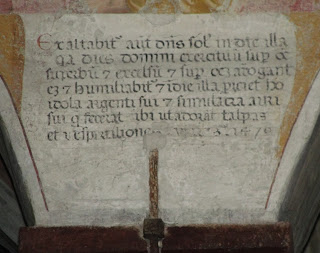 Exaltabit' aut dn̄s sol' in die illa
qa dies domini exercituū sup oē
superbū et excelsū et sup oēz arogant
ez et humiliabit' et idie illa piciet ho
idola argenti sui et simulacra auri
sui q fecerat ibi ut adorat talpas
et vespertiliones 1476